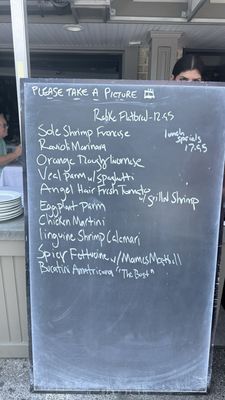 PLEASE TAKE A PICTURE
Flatbread - 12.95
lunch specials 17.95
Sole Shrimp Francise
Ravioli Marinara
Orange Livornese
Veal Parm w/ Spaghetti
Angel Hair Fresh Tomato w/ Grilled Shrimp
Eggplant Parm
Chicken Martini
Linguine Shrimp Calamari
Spicy Fettucine w/ Mamas Meatball
Bucatini Amatriciana "The Best"